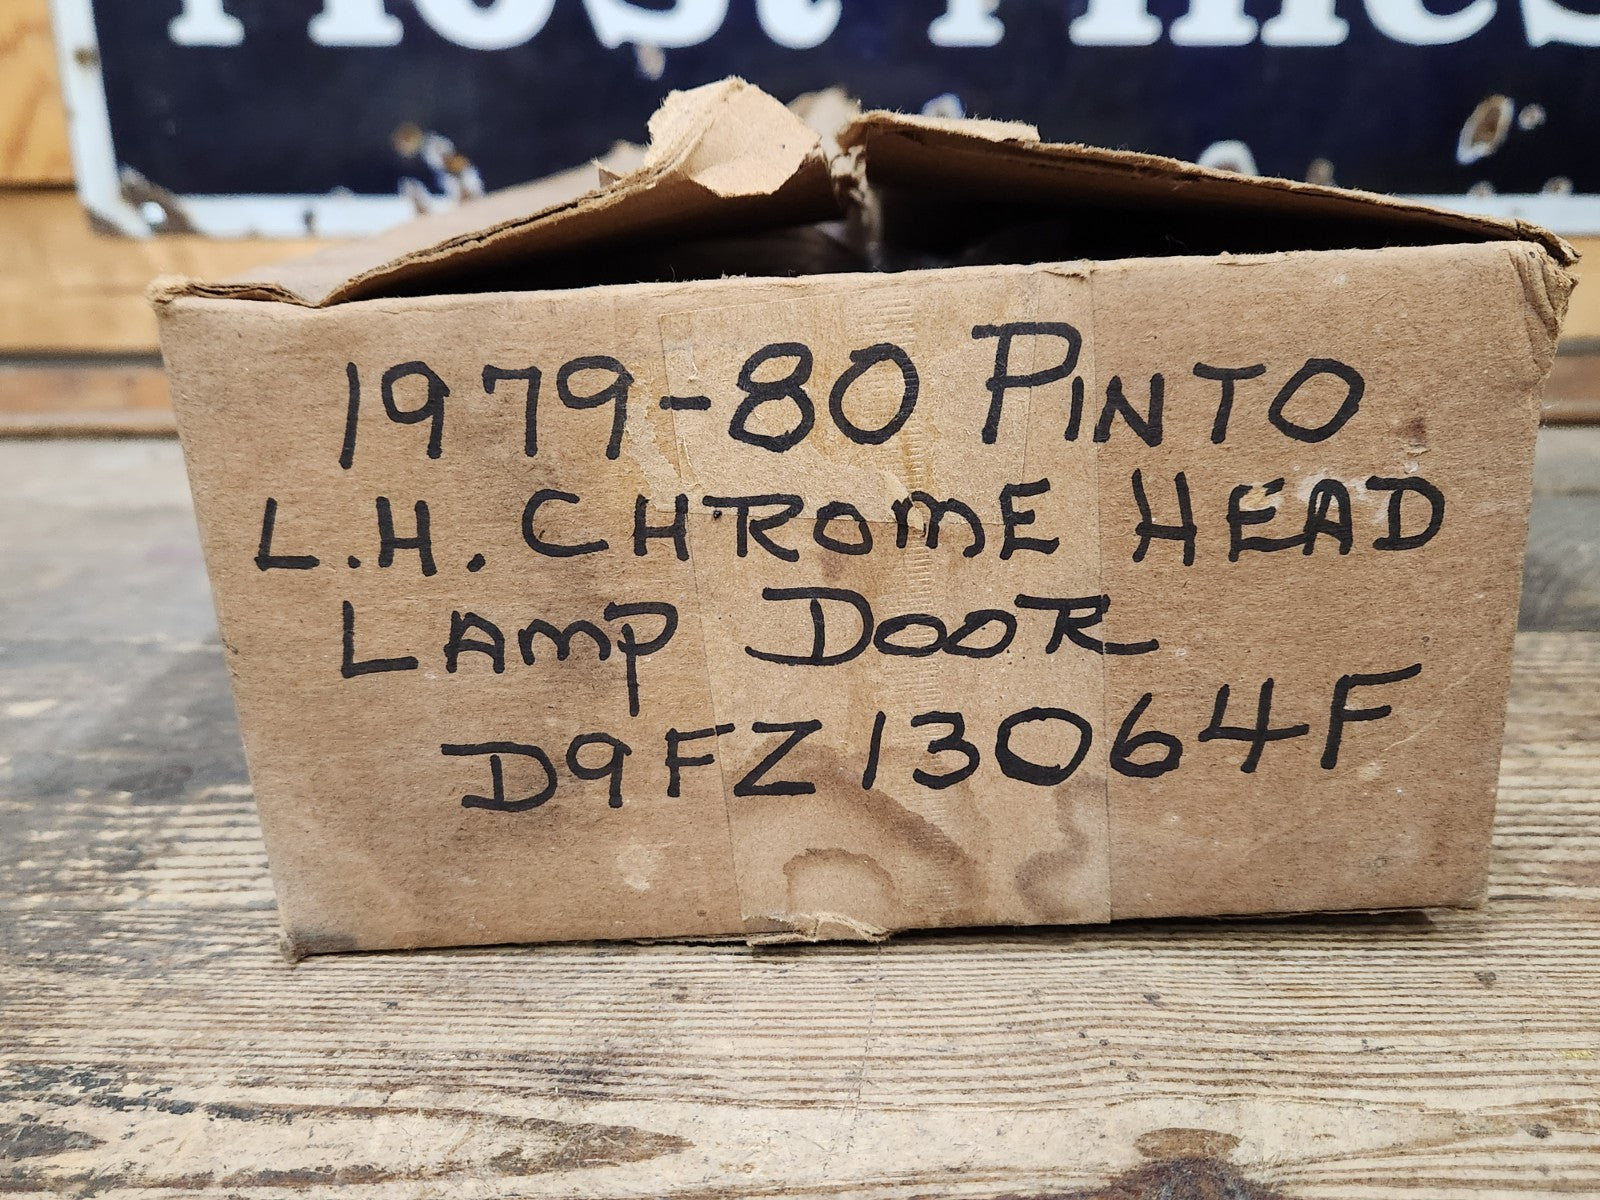 1979-80 PINTO
L.H. CHROME HEAD
LAMP DOOR
D9FZ13064F